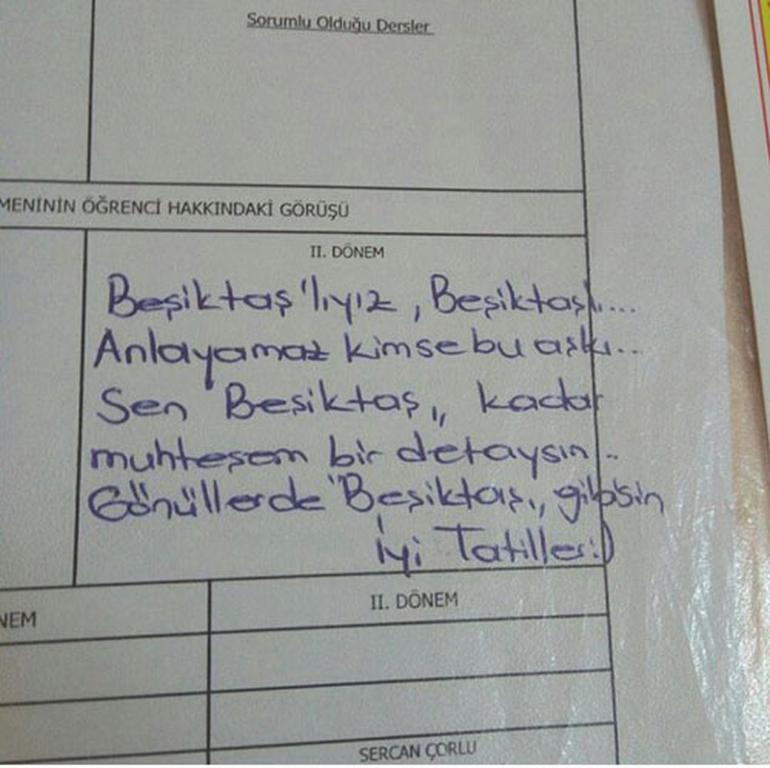 Sorumlu Olduğu Dersler
MENİNİN ÖĞRENCİ HAKKINDAKİ GÖRÜŞÜ
II. DÖNEM
Beşiktaş'lıyız, Beşiktaşlı...
Anlayamaz kimse bu aşkı...
Sen "Beşiktaş" kadar
muhteşem bir detaysın..
Gönüllerde "Beşiktaş" gibisin
İyi Tatiller:)
NEM
II. DÖNEM
SERCAN ÇORLU